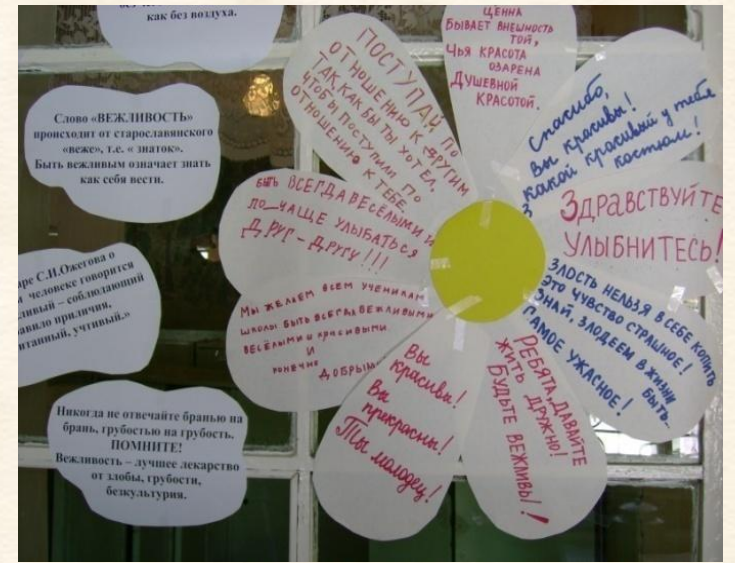 как без воздуха.
Слово «ВЕЖЛИВОСТЬ»
происходит от старославянского
«веже», т.е. « знаток».
Быть вежливым означает знать
как себя вести.
ре С.И.Ожегова о
человеке говорится
ливый – соблюдающий
авило приличия,
итанный, учтивый.»
Никогда не отвечайте бранью на
брань, грубостью на грубость.
ПОМНИТЕ!
Вежливость – лучшее лекарство
от злобы, грубости,
безкультурия.
ПОСТУПАЙ ПО
ОТНОШЕНИЮ К ДРУГИМ
ТАК, КАК БЫ ТЫ ХОТЕЛ,
ЧТОБЫ ПОСТУПИЛИ ПО
ОТНОШЕНИЮ К ТЕБЕ
ЦЕННА
БЫВАЕТ ВНЕШНОСТЬ
ТОЙ,
ЧЬЯ КРАСОТА
ОЗАРЕНА
ДУШЕВНОЙ
КРАСОТОЙ.
Спасибо,
Вы красивы!
Какой красивый у тебя
костюм!
ЗДРАВСТВУЙТЕ
УЛЫБНИТЕСЬ!
ЗЛОСТЬ НЕЛЬЗЯ В СЕБЕ КОПИТЬ
ЭТО ЧУВСТВО СТРАШНОЕ!
ЗНАЙ, ЗЛОДЕЕМ В ЖИЗНИ
БЫТЬ-
САМОЕ УЖАСНОЕ!
РЕБЯТА, ДАВАЙТЕ
ЖИТЬ ДРУЖНО!
БУДЬТЕ ВЕЖЛИВЫ!!
Вы
красивы!
Вы
прекрасны!
Ты молодец!
МЫ ЖЕЛАЕМ ВСЕМ УЧЕНИКАМ
ШКОЛЫ БЫТЬ ВСЕГДА ВЕЖЛИВЫМИ
ВЕСЁЛЫМИ И КРАСИВЫМИ
И
КОНЕЧНО
ДОБРЫМ
БЫТЬ ВСЕГДА ВЕСЁЛЫМИ И
ПО_ЧАЩЕ УЛЫБАТЬСЯ
ДРУГ-ДРУГУ!!!